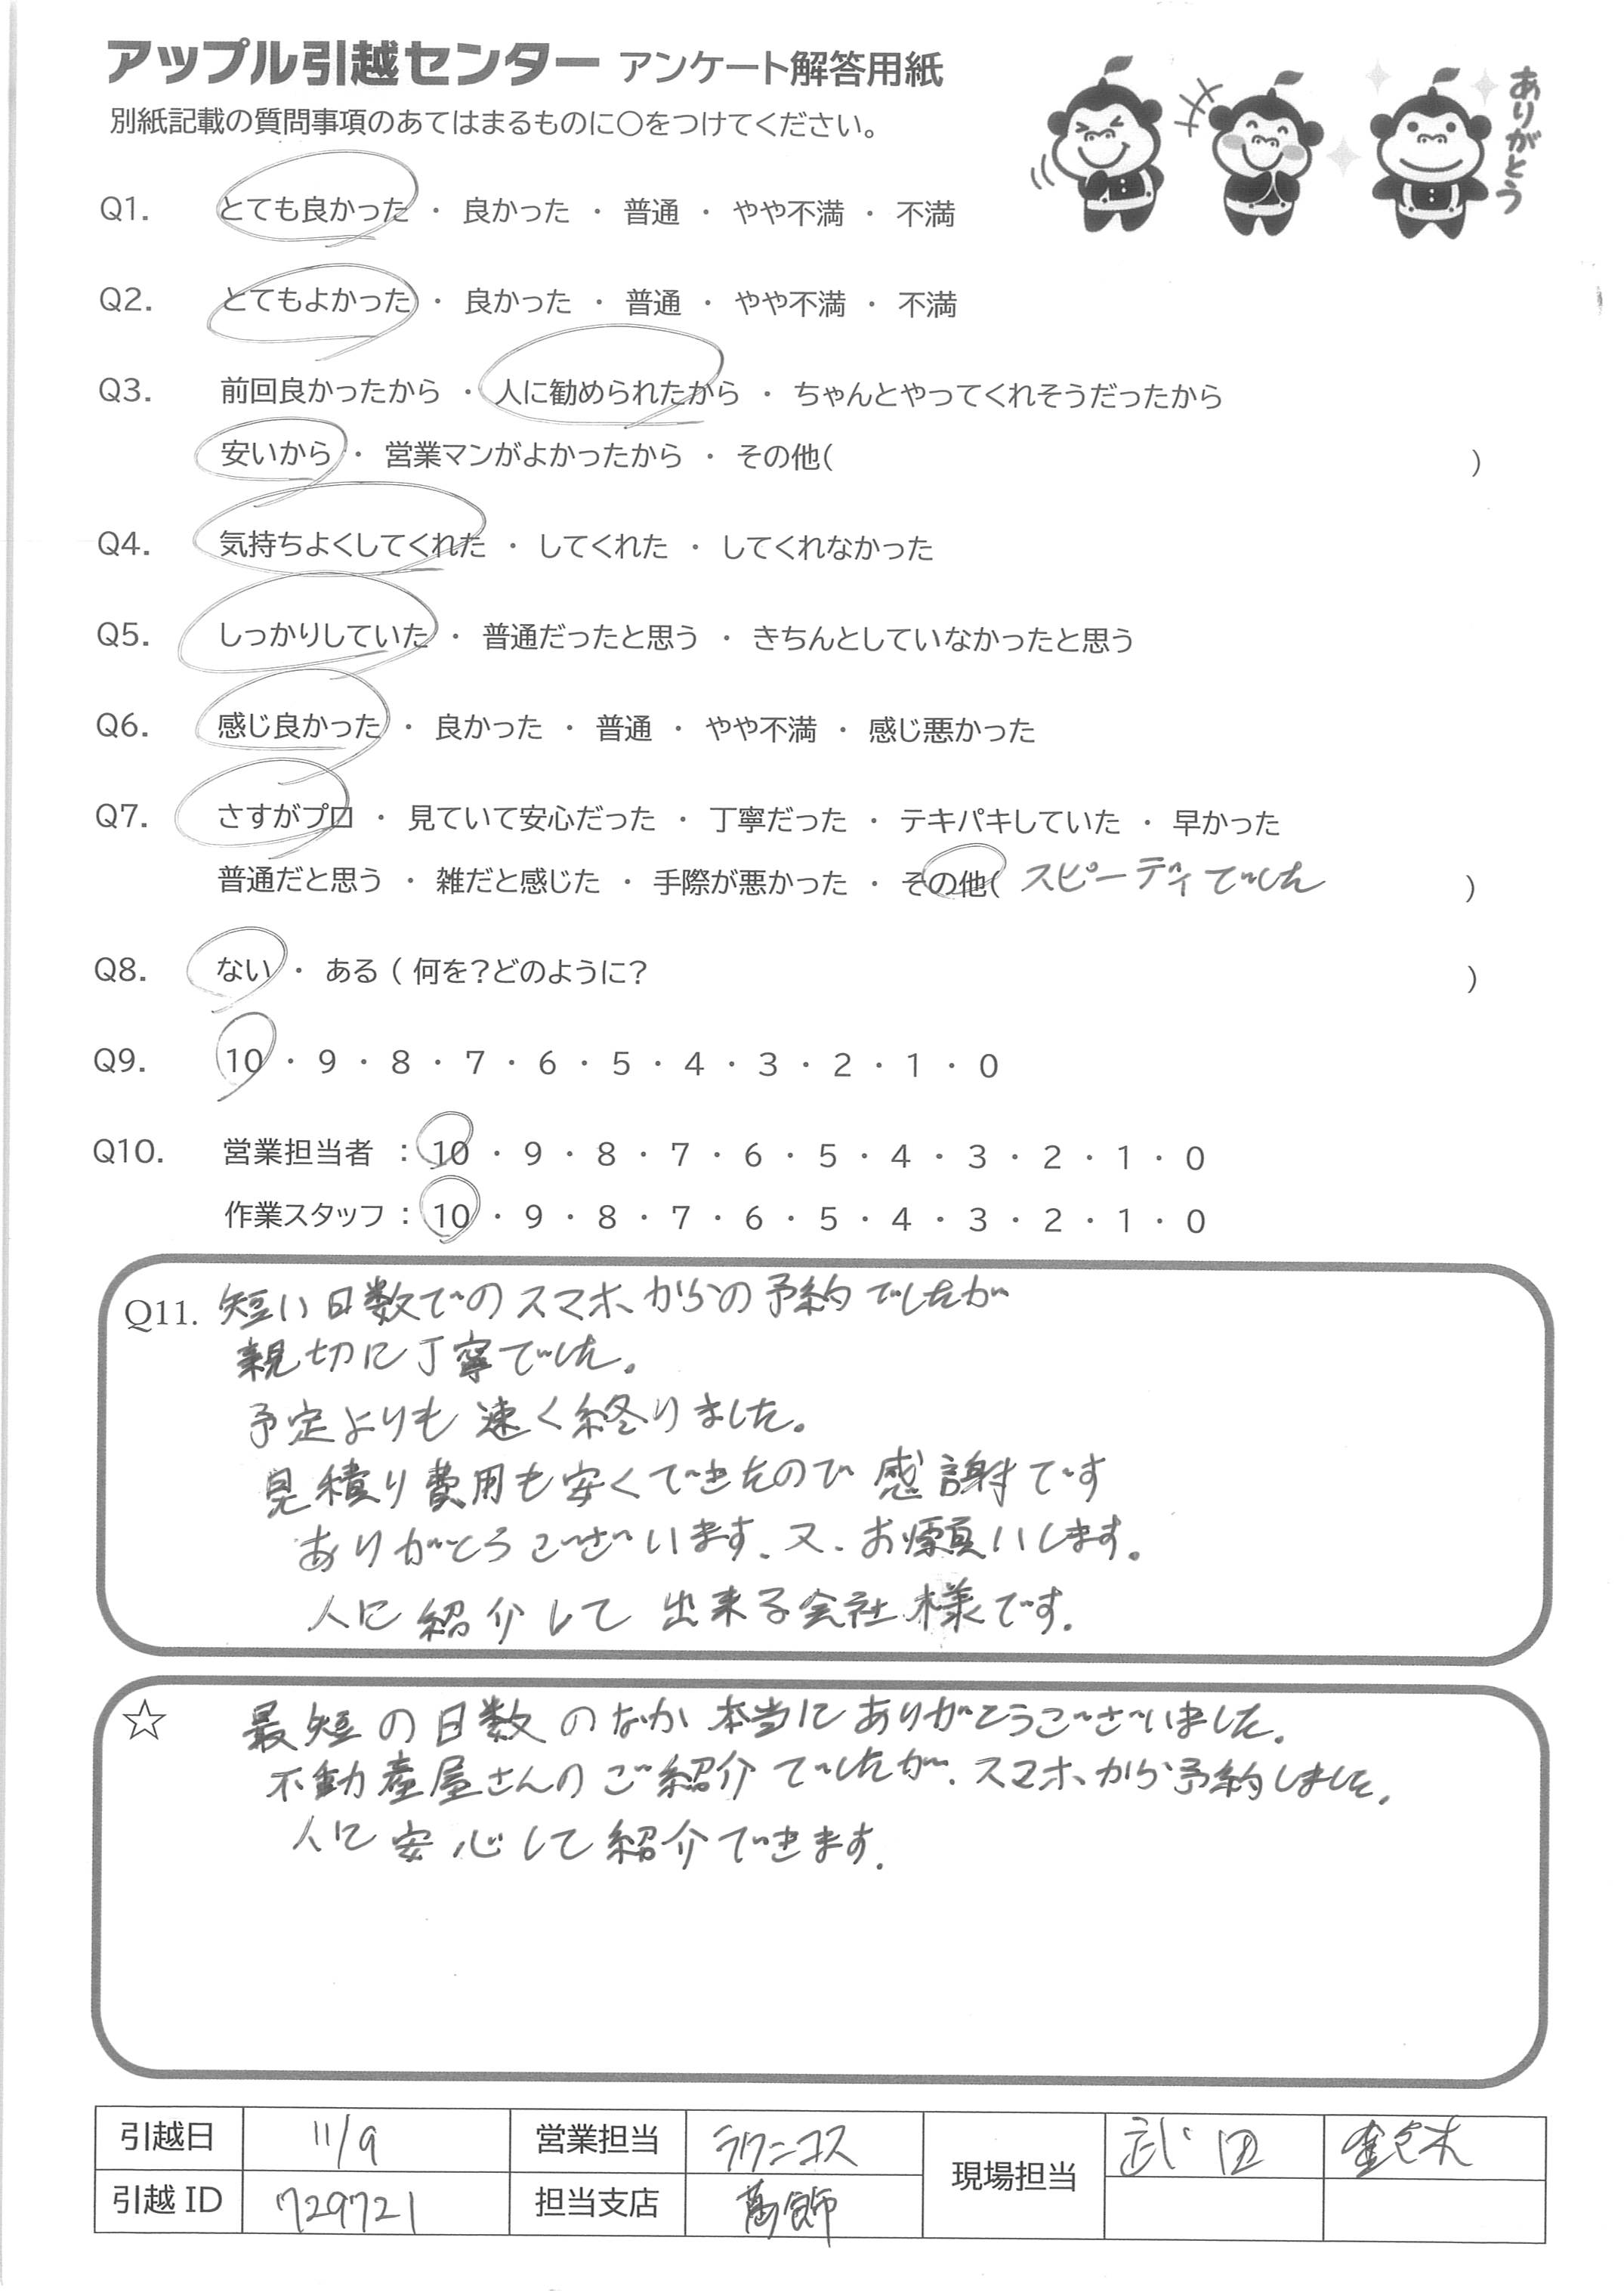 アップル引越センター アンケート解答用紙
別紙記載の質問事項のあてはまるものに○をつけてください。
ありがとう
Q1. とても良かった ・ 良かった ・ 普通 ・ やや不満 ・ 不満
Q2. とてもよかった ・ 良かった ・ 普通 ・ やや不満 ・ 不満
Q3. 前回良かったから ・ 人に勧められたから ・ ちゃんとやってくれそうだったから
安いから ・ 営業マンがよかったから ・ その他( )
Q4. 気持ちよくしてくれた ・ してくれた ・ してくれなかった
Q5. しっかりしていた ・ 普通だったと思う ・ きちんとしていなかったと思う
Q6. 感じ良かった ・ 良かった ・ 普通 ・ やや不満 ・ 感じ悪かった
Q7. さすがプロ ・ 見ていて安心だった ・ 丁寧だった ・ テキパキしていた ・ 早かった
普通だと思う ・ 雑だと感じた ・ 手際が悪かった ・ その他( スピーディでした )
Q8. ない ・ ある ( 何を？どのように？ )
Q9. 10 ・ 9 ・ 8 ・ 7 ・ 6 ・ 5 ・ 4 ・ 3 ・ 2 ・ 1 ・ 0
Q10. 営業担当者 : 10 ・ 9 ・ 8 ・ 7 ・ 6 ・ 5 ・ 4 ・ 3 ・ 2 ・ 1 ・ 0
作業スタッフ : 10 ・ 9 ・ 8 ・ 7 ・ 6 ・ 5 ・ 4 ・ 3 ・ 2 ・ 1 ・ 0
Q11. 短い日数でのスマホからの予約でしたが
親切に丁寧でした。
予定よりも速く終りました。
見積り費用も安くできたので感謝です
ありがとうございます。又、お願いします。
人に紹介して出来る会社様です。
☆ 最短の日数のなか本当にありがとうございました。
不動産屋さんのご紹介でしたが、スマホから予約しました。
人に安心して紹介できます。
引越日 11/9 営業担当 現場担当 武田 鈴木
引越ID 729721 担当支店 葛飾